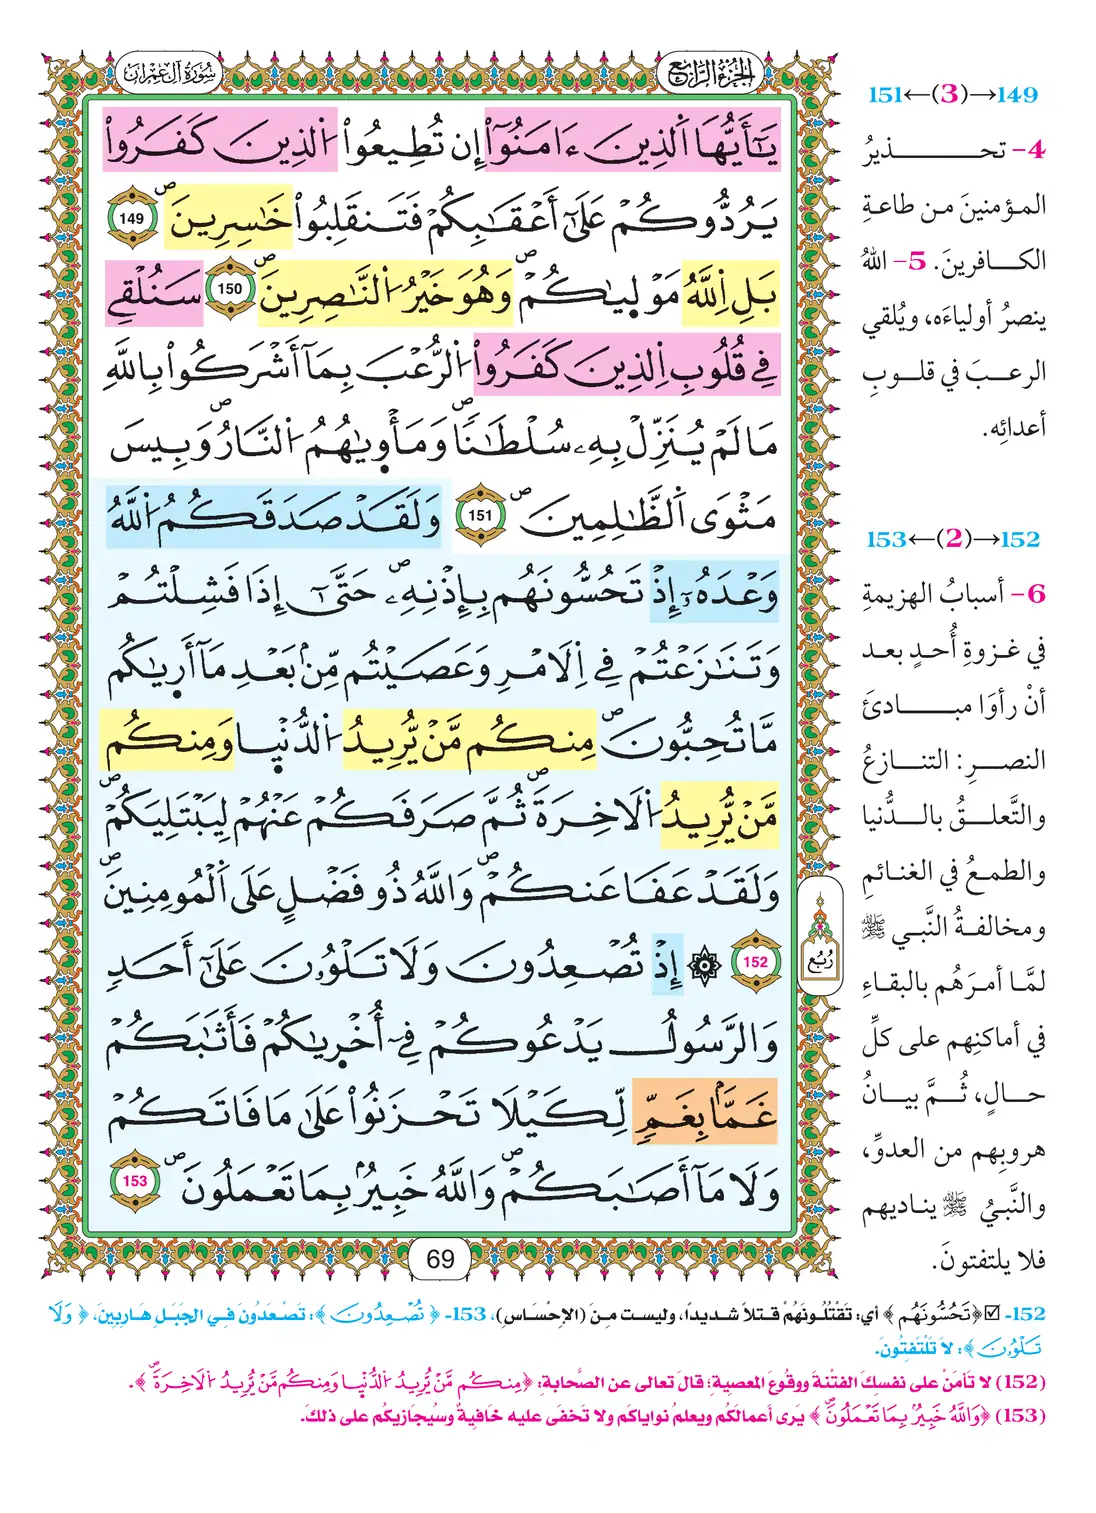 الجزء الرابع
سورة آل عمران
يَٰٓأَيُّهَا اَ۬لذِينَ ءَامَنُوٓاْ إِن تُطِيعُواْ اُ۬لذِينَ كَفَرُواْ
يَرُدُّوكُمْ عَلَىٰٓ أَعْقَٰبِكُمْ فَتَنقَلِبُواْ خَٰسِرِينَۖ 149
بَلِ اِ۬للَّهُ مَوْل۪يٰكُمْۖ وَهُوَ خَيْرُ اُ۬لنَّٰصِرِينَۖ 150 سَنُلْقِے
فِے قُلُوبِ اِ۬لذِينَ كَفَرُواْ اُ۬لرُّعْبَ بِمَآ أَشْرَكُواْ بِاللَّهِ
مَا لَمْ يُنَزِّلْ بِهِۦ سُلْطَٰناٗۖ وَمَأْو۪يٰهُمُ اُ۬لنَّارُۖ وَبِيسَ
مَثْوَى اَ۬لظَّٰلِمِينَۖ 151 وَلَقَدْ صَدَقَكُمُ اُ۬للَّهُ
وَعْدَهُۥٓ إِذْ تَحُسُّونَهُم بِإِذْنِهِۦۖ حَتَّىٰٓ إِذَا فَشِلْتُمْ
وَتَنَٰزَعْتُمْ فِے اِ۬لَامْرِ وَعَصَيْتُم مِّنۢ بَعْدِ مَآ أَر۪يٰكُم
مَّا تُحِبُّونَۖ مِنكُم مَّنْ يُّرِيدُ اُ۬لدُّنْي۪ا وَمِنكُم
مَّنْ يُّرِيدُ اُ۬لَاخِرَةَۖ ثُمَّ صَرَفَكُمْ عَنْهُمْ لِيَبْتَلِيَكُمْۖ
وَلَقَدْ عَفَا عَنكُمْۖ وَاللَّهُ ذُو فَضْلٍ عَلَى اَ۬لْمُومِنِينَۖ
152 ۞ إِذْ تُصْعِدُونَ وَلَا تَلْوُۥنَ عَلَىٰٓ أَحَدٖ
وَالرَّسُولُ يَدْعُوكُمْ فِےٓ أُخْر۪يٰكُمْ فَأَثَٰبَكُمْ
غَمَّاۢ بِغَمّٖ لِّكَيْلَا تَحْزَنُواْ عَلَىٰ مَا فَاتَكُمْ
وَلَا مَآ أَصَٰبَكُمْۖ وَاللَّهُ خَبِيرُۢ بِمَا تَعْمَلُونَۖ 153
ربع
69
149→(3)←151
4- تحذيرُ
المؤمنينَ من طاعةِ
الكافرينَ. 5- اللهُ
ينصرُ أولياءَه، ويُلقي
الرعبَ في قلوبِ
أعدائِه.
152→(2)←153
6- أسبابُ الهزيمةِ
في غزوةِ أُحدٍ بعد
أنْ رأوَا مبادئَ
النصرِ: التنازعُ
والتَّعلقُ بالدُّنيا
والطمعُ في الغنائمِ
ومخالفةُ النَّبي ﷺ
لمَّا أمرَهُم بالبقاءِ
في أماكنِهم على كلِّ
حالٍ، ثُمَّ بيانُ
هروبِهم من العدوِّ،
والنَّبيُ ﷺ يناديهم
فلا يلتفتونَ.
152- ☑﴿تَحُسُّونَهُم﴾ أي: تَقْتُلُونَهُمْ قتلاً شديداً، وليست منَ (الإحْسَاس)، 153- ﴿تُصْعِدُونَ﴾: تَصْعَدُونَ في الجَبَلِ هَاربِينَ، ﴿وَلَا
تَلْوُۥنَ﴾: لَا تَلْتَفِتُونَ.
(152) لا تَأمَنْ على نفسِكَ الفتْنةَ ووقُوعَ المعصيةِ؛ قالَ تعالى عن الصَّحابةِ: ﴿مِنكُم مَّنْ يُّرِيدُ اُ۬لدُّنْي۪ا وَمِنكُم مَّنْ يُّرِيدُ اُ۬لَاخِرَةَۖ﴾.
(153) ﴿وَاللَّهُ خَبِيرُۢ بِمَا تَعْمَلُونَۖ﴾ يَرى أعمالَكُم ويعلمُ نواياكم ولا تَخفَى عليه خَافيةٌ وسيُجازيكُم على ذلكَ.